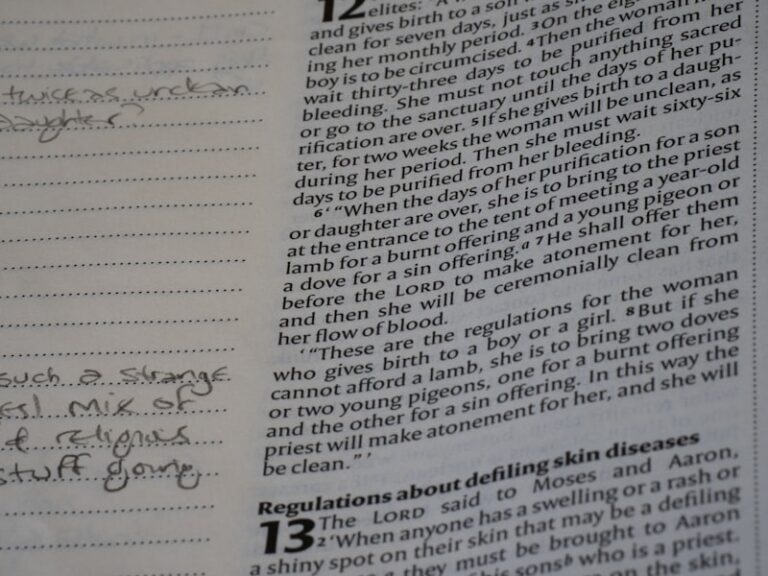 twice as unclean
daughter"
such a strange
mix of
religious
stuff going
12
elites:
and gives birth to a son
clean for seven days, just as
ing her monthly period. ³On the
boy is to be circumcised. ⁴Then the woman
wait thirty-three days to be purified from her
bleeding. She must not touch anything sacred
or go to the sanctuary until the days of her pu-
rification are over. ⁵If she gives birth to a daugh-
ter, for two weeks the woman will be unclean, as
during her period. Then she must wait sixty-six
days to be purified from her bleeding.
⁶‘“When the days of her purification for a son
or daughter are over, she is to bring to the priest
at the entrance to the tent of meeting a year-old
lamb for a burnt offering and a young pigeon or
a dove for a sin offering.ᵃ ⁷He shall offer them
before the LORD to make atonement for her,
and then she will be ceremonially clean from
her flow of blood.
‘“These are the regulations for the woman
who gives birth to a boy or a girl. ⁸But if she
cannot afford a lamb, she is to bring two doves
or two young pigeons, one for a burnt offering
and the other for a sin offering. In this way the
priest will make atonement for her, and she will
be clean.”’
Regulations about defiling skin diseases
13 The LORD said to Moses and Aaron,
²‘When anyone has a swelling or a rash or
a shiny spot on their skin that may be a defiling
they must be brought to Aaron
sonsᵇ who is a priest.
on the skin,